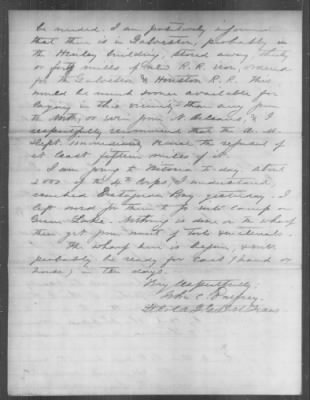 be needed. I am positively informed
that there is in Galveston, probably in
the Hendley building, stored away, thirty
or forty miles of R.R. iron, ordered
for the Galveston & Houston R.R. This
would be much sooner available for
laying in this vicinity than any from
the North, or even from N. Orleans, & I
respectfully recommend that the Q. M.
Dept. immediately the of
at least fifteen miles of it.
I am going to Victoria to-day. About
2000 of the 4th Corps, I understand,
reached Matagorda Bay yesterday. I
left word for them to go into camp on
Green Lake. Nothing is done on the wharf
there yet from want of tools & material.
The wharf here is begun, & will
probably be ready for cars (hand or
horse) in ten days.
Very Respectfully,
John C. Palfrey